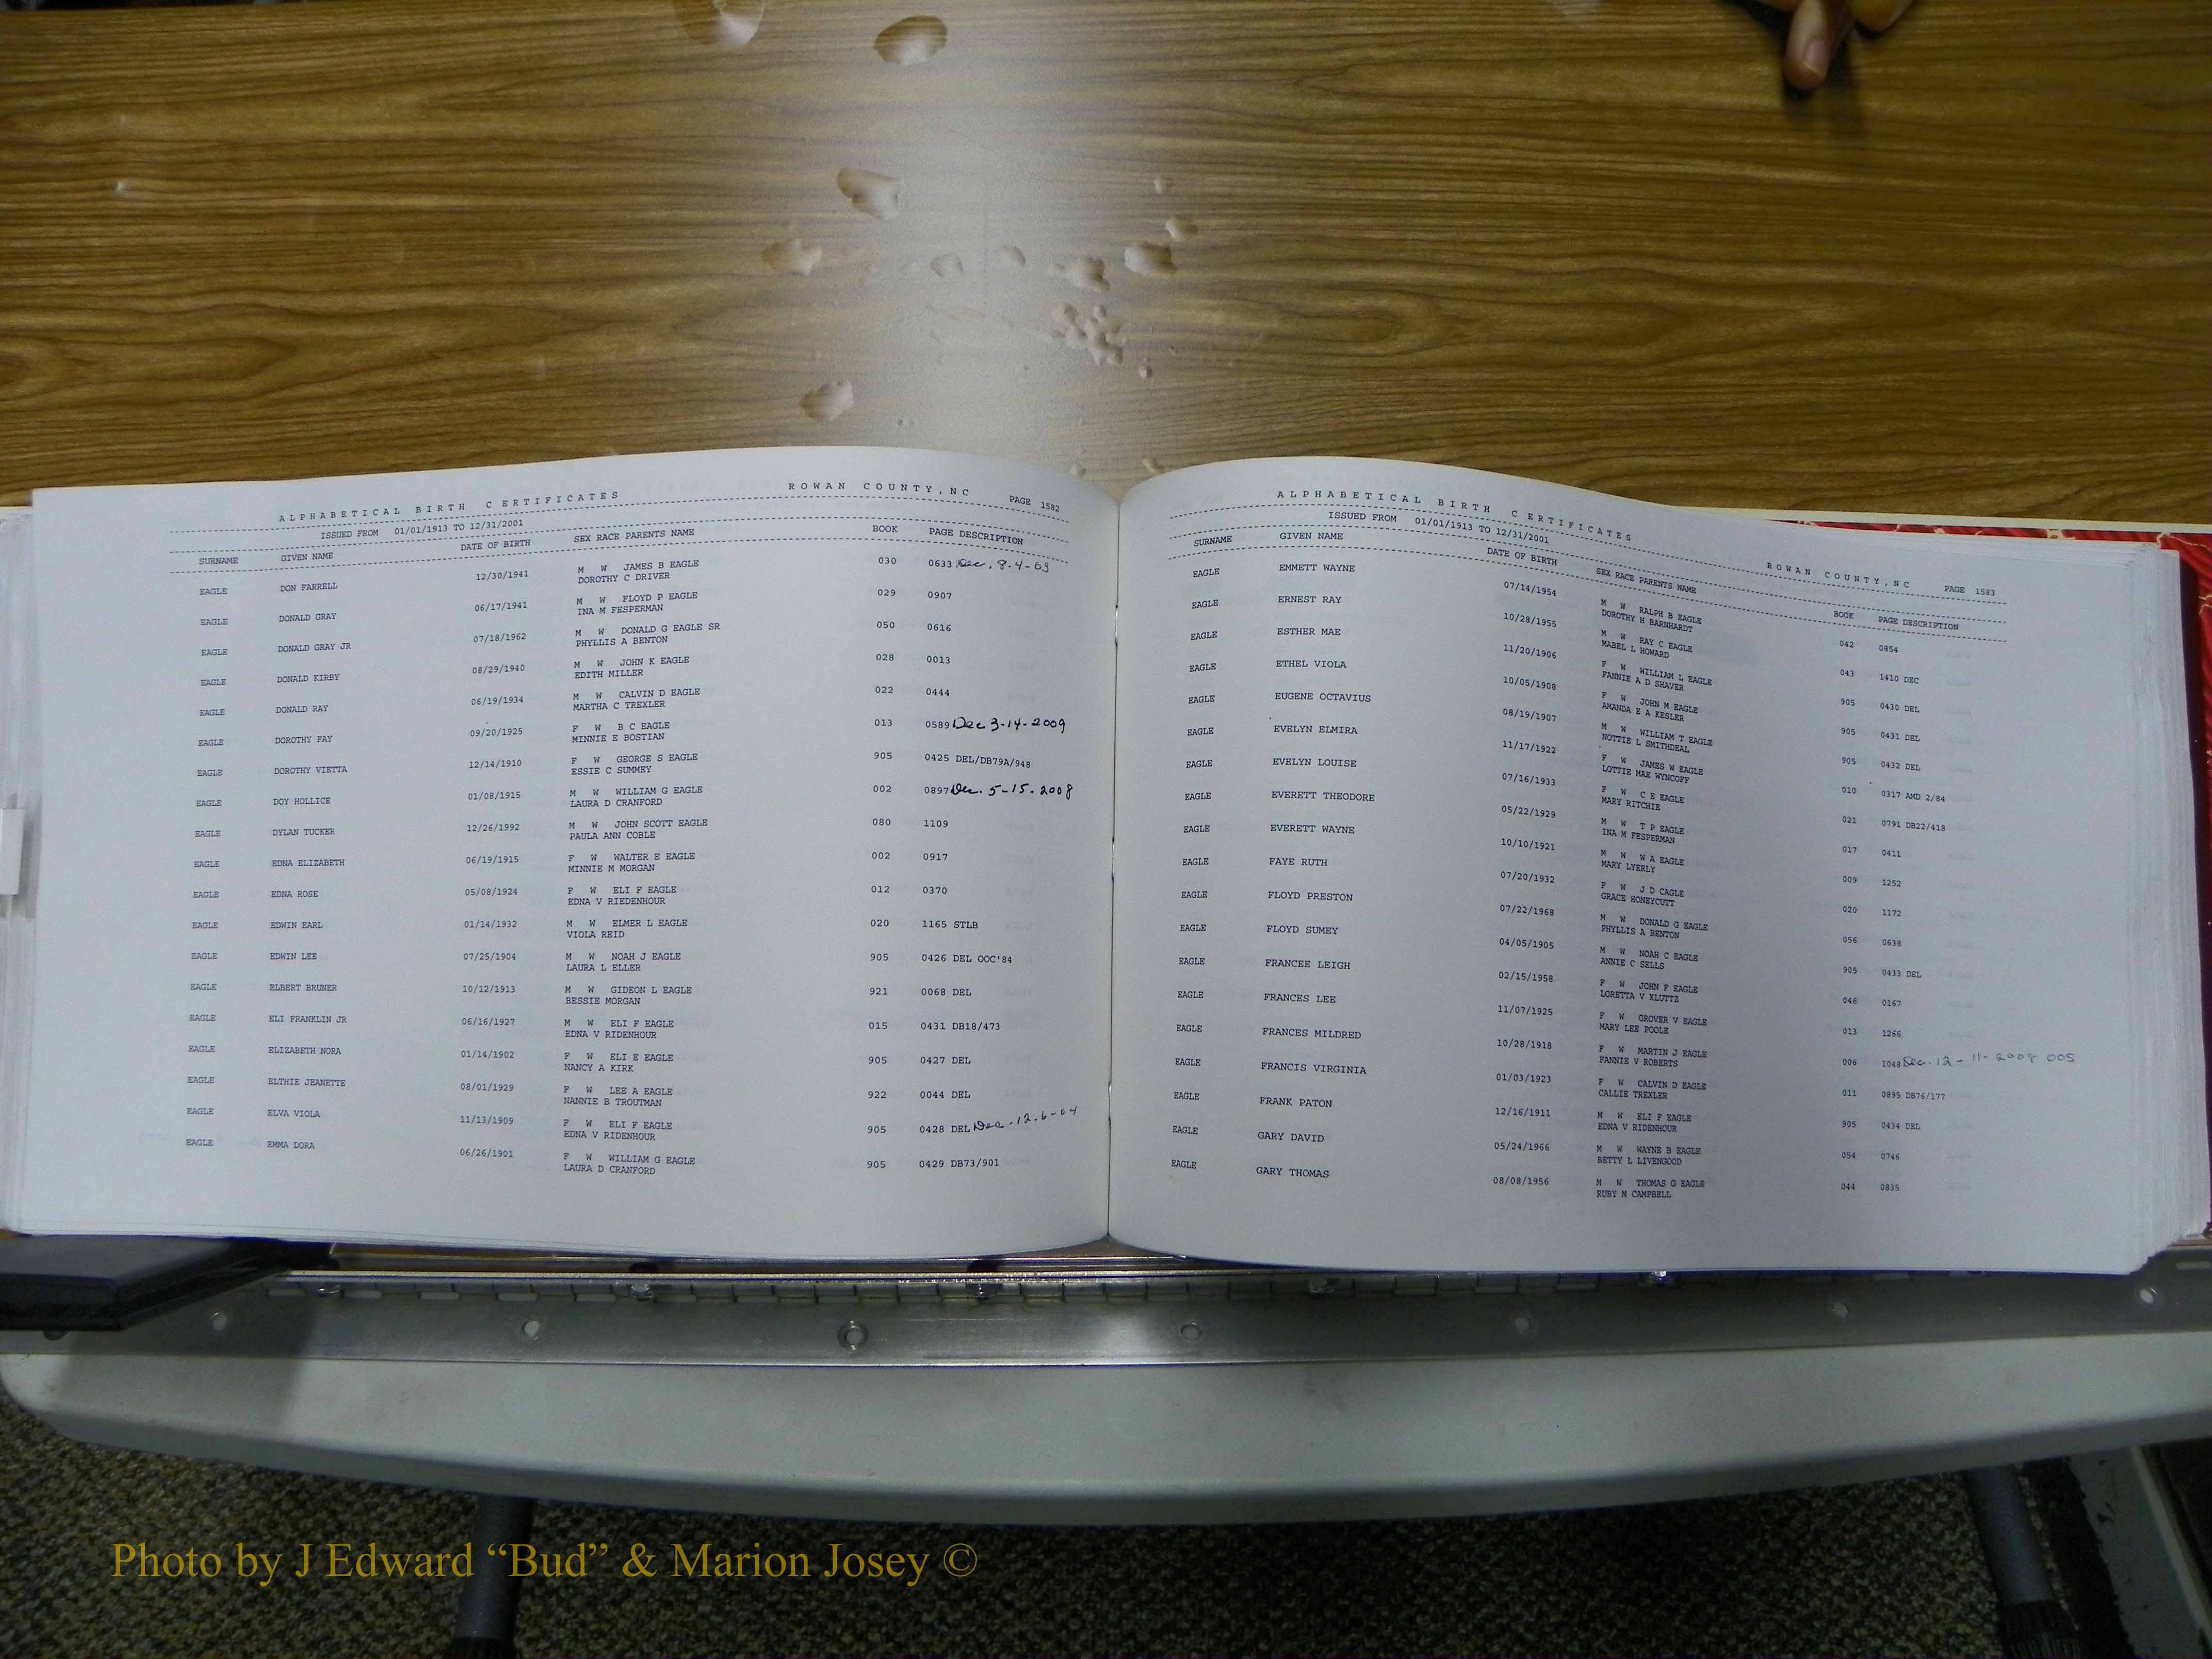 ALPHABETICAL BIRTH CERTIFICATES ROWAN COUNTY, NC PAGE 1582
ISSUED FROM 01/01/1913 TO 12/31/2001
SURNAME GIVEN NAME DATE OF BIRTH SEX RACE PARENTS NAME BOOK PAGE DESCRIPTION
EAGLE DON FARRELL 12/30/1941 M W JAMES B EAGLE 030 0633 Dec. 8-4-63
DOROTHY C DRIVER
EAGLE DONALD GRAY 06/17/1941 M W FLOYD P EAGLE 029 0907
INA M FESPERMAN
EAGLE DONALD GRAY JR 07/18/1962 M W DONALD G EAGLE SR 050 0616
PHYLLIS A BENTON
EAGLE DONALD KIRBY 08/29/1940 M W JOHN K EAGLE 028 0013
EDITH MILLER
EAGLE DONALD RAY 06/19/1934 M W CALVIN D EAGLE 022 0444
MARTHA C TREXLER
EAGLE DOROTHY FAY 09/20/1925 F W B C EAGLE 013 0589 Dec 3-14-2009
MINNIE E BOSTIAN
EAGLE DOROTHY VIETTA 12/14/1910 F W GEORGE S EAGLE 905 0425 DEL/DB79A/948
ESSIE C SUMMEY
EAGLE DOY HOLLICE 01/08/1915 M W WILLIAM G EAGLE 002 0897 Dec. 5-15-2008
LAURA D CRANFORD
EAGLE DYLAN TUCKER 12/26/1992 M W JOHN SCOTT EAGLE 080 1109
PAULA ANN COBLE
EAGLE EDNA ELIZABETH 06/19/1915 F W WALTER E EAGLE 002 0917
MINNIE M MORGAN
EAGLE EDNA ROSE 05/08/1924 F W ELI F EAGLE 012 0370
EDNA V RIEDENHOUR
EAGLE EDWIN EARL 01/14/1932 M W ELMER L EAGLE 020 1165 STLB
VIOLA REID
EAGLE EDWIN LEE 07/25/1904 M W NOAH J EAGLE 905 0426 DEL OOC'84
LAURA L ELLER
EAGLE ELBERT BRUNER 10/12/1913 M W GIDEON L EAGLE 921 0068 DEL
BESSIE MORGAN
EAGLE ELI FRANKLIN JR 06/16/1927 M W ELI F EAGLE 015 0431 DB18/473
EDNA V RIDENHOUR
EAGLE ELIZABETH NORA 01/14/1902 F W ELI E EAGLE 905 0427 DEL
NANCY A KIRK
EAGLE ELTHIE JEANETTE 08/01/1929 F W LEE A EAGLE 922 0044 DEL
NANNIE B TROUTMAN
EAGLE ELVA VIOLA 11/13/1909 F W ELI F EAGLE 905 0428 DEL Dec. 12-6-04
EDNA V RIDENHOUR
EAGLE EMMA DORA 06/26/1901 F W WILLIAM G EAGLE 905 0429 DB73/901
LAURA D CRANFORD
ALPHABETICAL BIRTH CERTIFICATES ROWAN COUNTY, NC PAGE 1583
ISSUED FROM 01/01/1913 TO 12/31/2001
SURNAME GIVEN NAME DATE OF BIRTH SEX RACE PARENTS NAME BOOK PAGE DESCRIPTION
EAGLE EMMETT WAYNE 07/14/1954 M W RALPH B EAGLE 042 0854
DOROTHY H BARNHARDT
EAGLE ERNEST RAY 10/28/1955 M W RAY C EAGLE 043 1410 DEC
MABEL L HOWARD
EAGLE ESTHER MAE 11/20/1906 F W WILLIAM L EAGLE 905 0430 DEL
FANNIE A D SHAVER
EAGLE ETHEL VIOLA 10/05/1908 F W JOHN M EAGLE 905 0431 DEL
AMANDA E A KESLER
EAGLE EUGENE OCTAVIUS 08/19/1907 M W WILLIAM T EAGLE 905 0432 DEL
NOTTIE L SMITHDEAL
EAGLE EVELYN ELMIRA 11/17/1922 F W JAMES W EAGLE 010 0317 AMD 2/84
LOTTIE MAE WYNCOFF
EAGLE EVELYN LOUISE 07/16/1933 F W C E EAGLE 021 0791 DB22/418
MARY RITCHIE
EAGLE EVERETT THEODORE 05/22/1929 M W T P EAGLE 017 0411
INA M FESPERMAN
EAGLE EVERETT WAYNE 10/10/1921 M W W A EAGLE 009 1252
MARY LYERLY
EAGLE FAYE RUTH 07/20/1932 F W J D CAGLE 020 1172
GRACE HONEYCUTT
EAGLE FLOYD PRESTON 07/22/1968 M W DONALD G EAGLE 056 0638
PHYLLIS A BENTON
EAGLE FLOYD SUMEY 04/05/1905 M W NOAH C EAGLE 905 0433 DEL
ANNIE C SELLS
EAGLE FRANCEE LEIGH 02/15/1958 F W JOHN F EAGLE 046 0167
LORETTA V KLUTTZ
EAGLE FRANCES LEE 11/07/1925 F W GROVER V EAGLE 013 1266
MARY LEE POOLE
EAGLE FRANCES MILDRED 10/28/1918 F W MARTIN J EAGLE 006 1048 Dec. 12-11-2008 005
FANNIE V ROBERTS
EAGLE FRANCIS VIRGINIA 01/03/1923 F W CALVIN D EAGLE 011 0895 DB76/177
CALLIE TREXLER
EAGLE FRANK PATON 12/16/1911 M W ELI F EAGLE 905 0434 DEL
EDNA V RIDENHOUR
EAGLE GARY DAVID 05/24/1966 M W WAYNE B EAGLE 054 0746
BETTY L LIVENGOOD
EAGLE GARY THOMAS 08/08/1956 M W THOMAS G EAGLE 044 0835
RUBY M CAMPBELL
Photo by J Edward “Bud” & Marion Josey ©